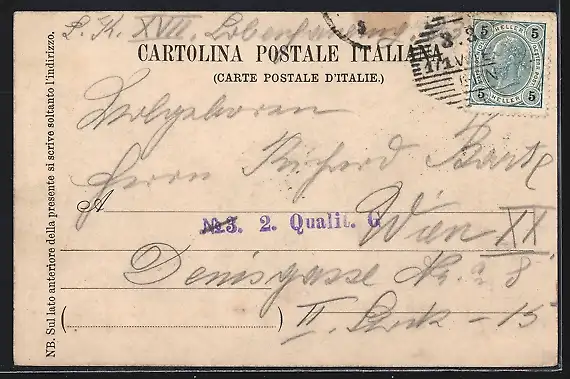 P. K. XVII.
CARTOLINA POSTALE ITALIANA
(CARTE POSTALE D'ITALIE.)
5 HELLER 5
5 HELLER 5
Wolgeboren
Herrn Richard
A
№3. 2. Qualit. G
Wien XX.
Denisgasse Nr. 28
II. Stock - 15
NB. Sul lato anteriore della presente si scrive soltanto l'indirizzo.